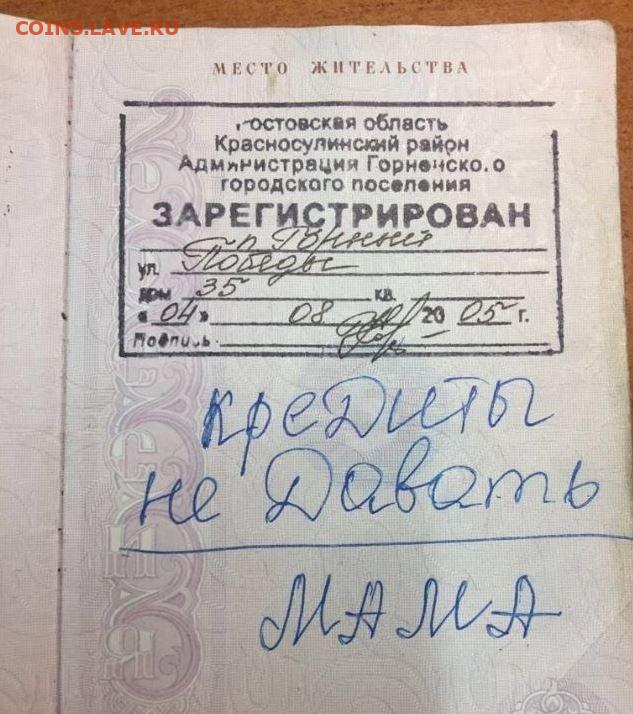 COINS.LAVE.RU
МЕСТО ЖИТЕЛЬСТВА
Ростовская область
Красносулинский район
Администрация Горненского
городского поселения
ЗАРЕГИСТРИРОВАН
п. Горный
ул. Победы
дом 35 кв.
« 04 » 08 20 05 г.
Подпись
кредиты
не давать
МАМА